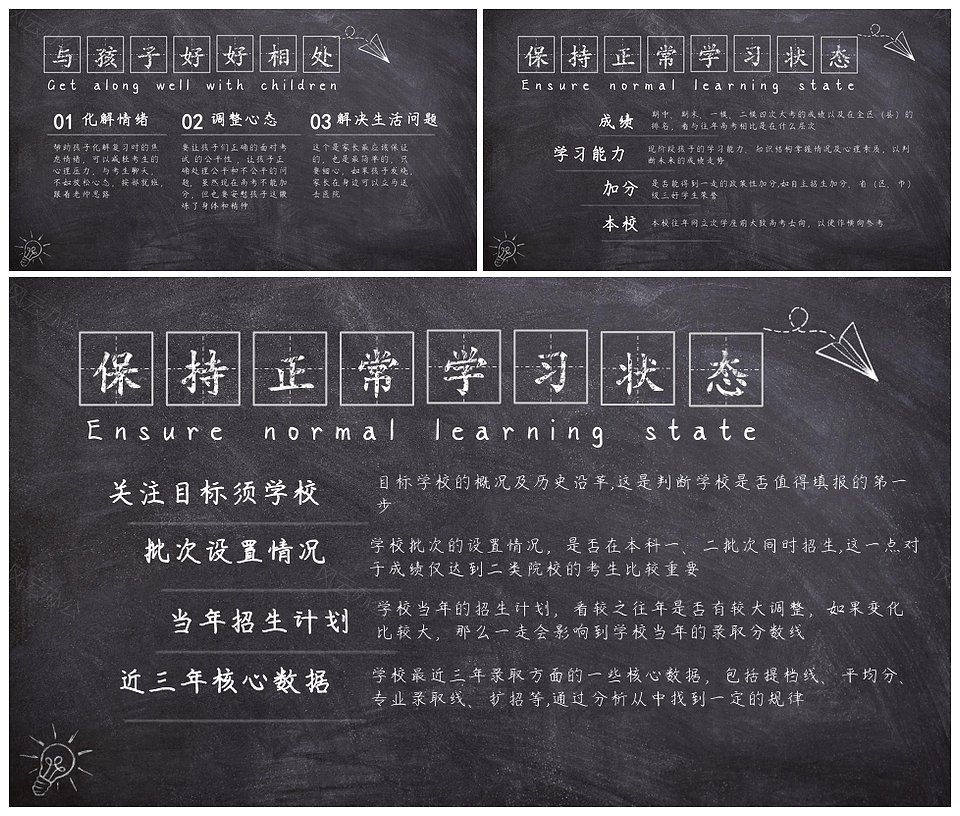 与孩子好好相处
Get along well with children
01 化解情绪
帮助孩子化解复习时的焦
虑情绪，可以减轻考生的
心理压力，与考生聊天，
不如放松心态，按部就班，
跟着老师思路
02 调整心态
要让孩子们正确的面对考
试的公平性，让孩子正
确处理公平和不公平的问
题，虽然现在高考不能加
分，但也要安慰孩子这锻
炼了身体和精神
03 解决生活问题
这个是家长最应该保证
的，也是最简单的，只
要细心，如果孩子发烧，
家长在身边可以立马送
去医院
保持正常学习状态
Ensure normal learning state
成绩
期中、期末、一模、二模四次大考的成绩以及在全区（县）的
排名，看与往年高考相比是在什么层次
学习能力
现阶段孩子的学习能力、知识结构掌握情况及心理素质，以判
断未来的成绩走势
加分
是否能得到一定的政策性加分,如自主招生加分、省（区、市）
级三好学生荣誉
本校
本校往年同立次学座前大致高考去向，以便作横向参考
保持正常学习状态
Ensure normal learning state
关注目标须学校
目标学校的概况及历史沿革,这是判断学校是否值得填报的第一
步
批次设置情况
学校批次的设置情况，是否在本科一、二批次同时招生,这一点对
于成绩仅达到二类院校的考生比较重要
当年招生计划
学校当年的招生计划，看较之往年是否有较大调整，如果变化
比较大，那么一定会影响到学校当年的录取分数线
近三年核心数据
学校最近三年录取方面的一些核心数据，包括提档线、平均分、
专业录取线、扩招等,通过分析从中找到一定的规律